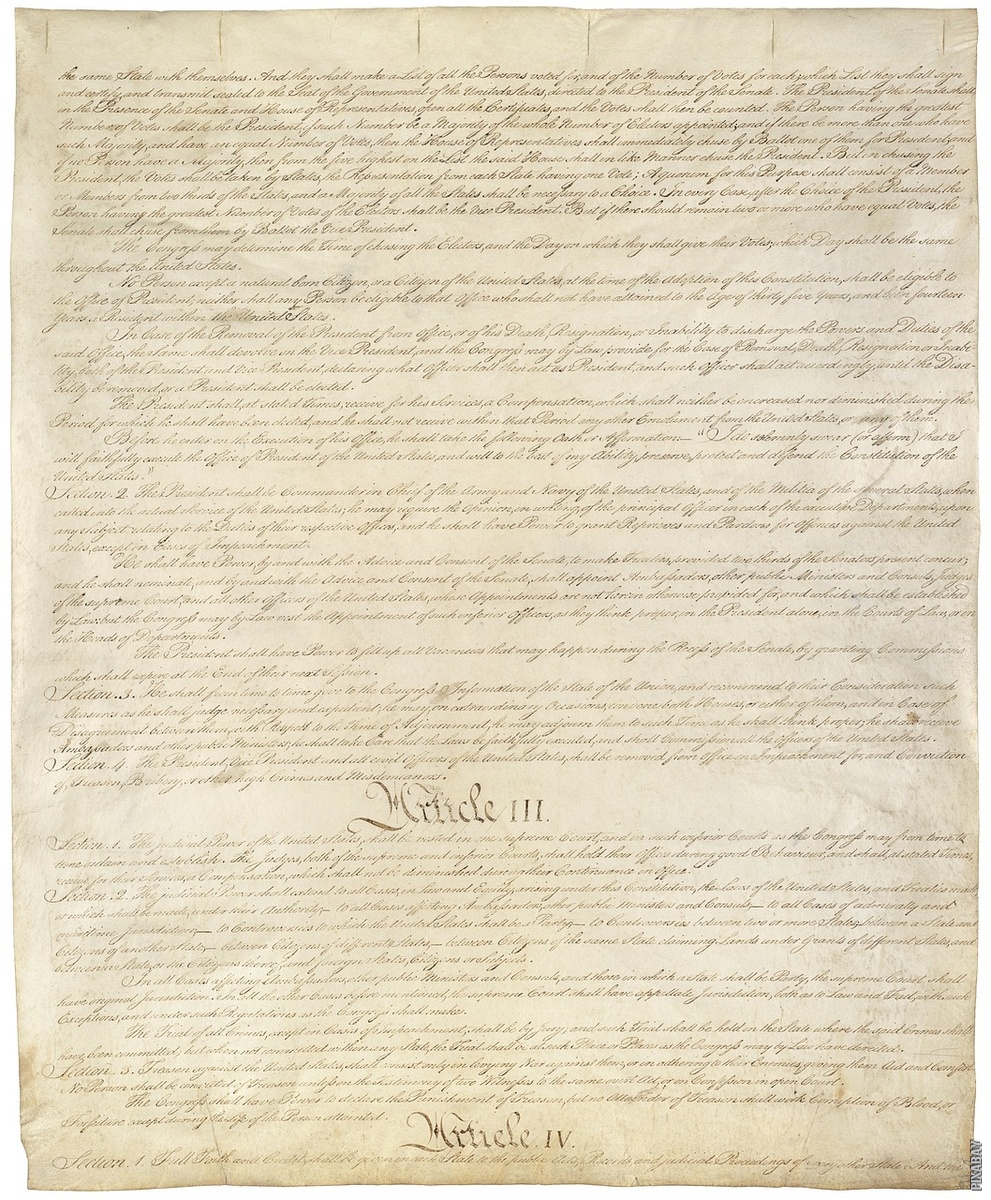 the same State with themselves. And they shall make a List of all the Persons voted for, and of the Number of Votes for each; which List they shall sign
and certify, and transmit sealed to the Seat of the Government of the United States, directed to the President of the Senate. The President of the Senate shall,
in the Presence of the Senate and House of Representatives, open all the Certificates, and the Votes shall then be counted. The Person having the greatest
Number of Votes shall be the President, if such Number be a Majority of the whole Number of Electors appointed; and if there be more than one who have
such Majority, and have an equal Number of Votes, then the House of Representatives shall immediately chuse by Ballot one of them for President; and
if no Person have a Majority, then from the five highest on the List the said House shall in like Manner chuse the President. But in chusing the
President, the Votes shall be taken by States, the Representation from each State having one Vote; A quorum for this Purpose shall consist of a Member
or Members from two thirds of the States, and a Majority of all the States shall be necessary to a Choice. In every Case, after the Choice of the President, the
Person having the greatest Number of Votes of the Electors shall be the Vice President. But if there should remain two or more who have equal Votes, the
Senate shall chuse from them by Ballot the Vice President.
The Congress may determine the Time of chusing the Electors, and the Day on which they shall give their Votes; which Day shall be the same
throughout the United States.
No Person except a natural born Citizen, or a Citizen of the United States, at the time of the Adoption of this Constitution, shall be eligible to
the Office of President; neither shall any Person be eligible to that Office who shall not have attained to the Age of thirty five Years, and been fourteen
Years a Resident within the United States.
In Case of the Removal of the President from Office, or of his Death, Resignation, or Inability to discharge the Powers and Duties of the
said Office, the Same shall devolve on the Vice President, and the Congress may by Law provide for the Case of Removal, Death, Resignation or Inabi-
lity, both of the President and Vice President, declaring what Officer shall then act as President, and such Officer shall act accordingly, until the Disa-
bility be removed, or a President shall be elected.
The President shall, at stated Times, receive for his Services, a Compensation, which shall neither be encreased nor diminished during the
Period for which he shall have been elected, and he shall not receive within that Period any other Emolument from the United States, or any of them.
Before he enter on the Execution of his Office, he shall take the following Oath or Affirmation:— "I do solemnly swear (or affirm) that I
will faithfully execute the Office of President of the United States, and will to the best of my Ability, preserve, protect and defend the Constitution of the
United States."
Section. 2. The President shall be Commander in Chief of the Army and Navy of the United States, and of the Militia of the several States, when
called into the actual Service of the United States; he may require the Opinion, in writing, of the principal Officer in each of the executive Departments, upon
any Subject relating to the Duties of their respective Offices, and he shall have Power to grant Reprieves and Pardons for Offences against the United
States, except in Cases of Impeachment.
He shall have Power, by and with the Advice and Consent of the Senate, to make Treaties, provided two thirds of the Senators present concur;
and he shall nominate, and by and with the Advice and Consent of the Senate, shall appoint Ambassadors, other public Ministers and Consuls, Judges
of the supreme Court, and all other Officers of the United States, whose Appointments are not herein otherwise provided for, and which shall be established
by Law: but the Congress may by Law vest the Appointment of such inferior Officers, as they think proper, in the President alone, in the Courts of Law, or in
the Heads of Departments.
The President shall have Power to fill up all Vacancies that may happen during the Recess of the Senate, by granting Commissions
which shall expire at the End of their next Session.
Section. 3. He shall from time to time give to the Congress Information of the State of the Union, and recommend to their Consideration such
Measures as he shall judge necessary and expedient; he may, on extraordinary Occasions, convene both Houses, or either of them, and in Case of
Disagreement between them, with Respect to the Time of Adjournment, he may adjourn them to such Time as he shall think proper; he shall receive
Ambassadors and other public Ministers; he shall take Care that the Laws be faithfully executed, and shall Commission all the Officers of the United States.
Section. 4. The President, Vice President and all civil Officers of the United States, shall be removed from Office on Impeachment for, and Conviction
of, Treason, Bribery, or other high Crimes and Misdemeanors.
Article III.
Section. 1. The judicial Power of the United States, shall be vested in one supreme Court, and in such inferior Courts as the Congress may from time to
time ordain and establish. The Judges, both of the supreme and inferior Courts, shall hold their Offices during good Behaviour, and shall, at stated Times,
receive for their Services, a Compensation, which shall not be diminished during their Continuance in Office.
Section. 2. The judicial Power shall extend to all Cases, in Law and Equity, arising under this Constitution, the Laws of the United States, and Treaties made,
or which shall be made, under their Authority;— to all Cases affecting Ambassadors, other public Ministers and Consuls;— to all Cases of admiralty and
maritime Jurisdiction;— to Controversies to which the United States shall be a Party;— to Controversies between two or more States;— between a State and
Citizens of another State;— between Citizens of different States,— between Citizens of the same State claiming Lands under Grants of different States, and
between a State, or the Citizens thereof, and foreign States, Citizens or Subjects.
In all Cases affecting Ambassadors, other public Ministers and Consuls, and those in which a State shall be Party, the supreme Court shall
have original Jurisdiction. In all the other Cases before mentioned, the supreme Court shall have appellate Jurisdiction, both as to Law and Fact, with such
Exceptions, and under such Regulations as the Congress shall make.
The Trial of all Crimes, except in Cases of Impeachment, shall be by Jury; and such Trial shall be held in the State where the said Crimes shall
have been committed; but when not committed within any State, the Trial shall be at such Place or Places as the Congress may by Law have directed.
Section. 3. Treason against the United States, shall consist only in levying War against them, or in adhering to their Enemies, giving them Aid and Comfort.
No Person shall be convicted of Treason unless on the Testimony of two Witnesses to the same overt Act, or on Confession in open Court.
The Congress shall have Power to declare the Punishment of Treason, but no Attainder of Treason shall work Corruption of Blood, or
Forfeiture except during the Life of the Person attainted.
Article IV.
Section. 1. Full Faith and Credit shall be given in each State to the public Acts, Records, and judicial Proceedings of every other State. And the
PIXABAY